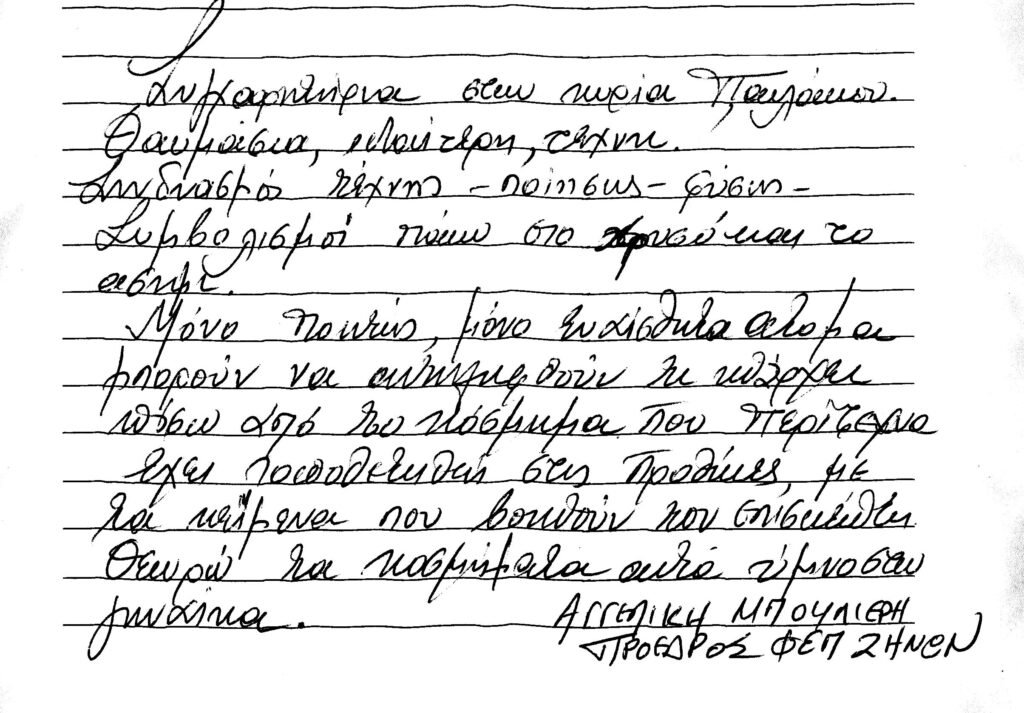 Συγχαρητήρια στην κυρία Παυλάκου.
Θαυμάσια, ιδιαίτερη, τέχνη.
Συνδυασμός τέχνης - ποίησης - φύσης -
Συμβολισμοί πάνω στο χρυσό και το
ασήμι.
Μόνο ποιητές, μόνο ευαίσθητα άτομα
μπορούν να αντιληφθούν τι υπάρχει
πίσω από το κόσμημα που περίτεχνα
έχει τοποθετηθεί στις προθήκες, με
τα κείμενα που βοηθούν τον επισκέπτη
Θεωρώ τα κοσμήματα αυτά ύμνο στην
γυναίκα.
ΑΓΓΕΛΙΚΗ ΜΠΟΥΛΙΕΡΗ
ΠΡΟΕΔΡΟΣ ΦΕΠ ΖΗΝΩΝ